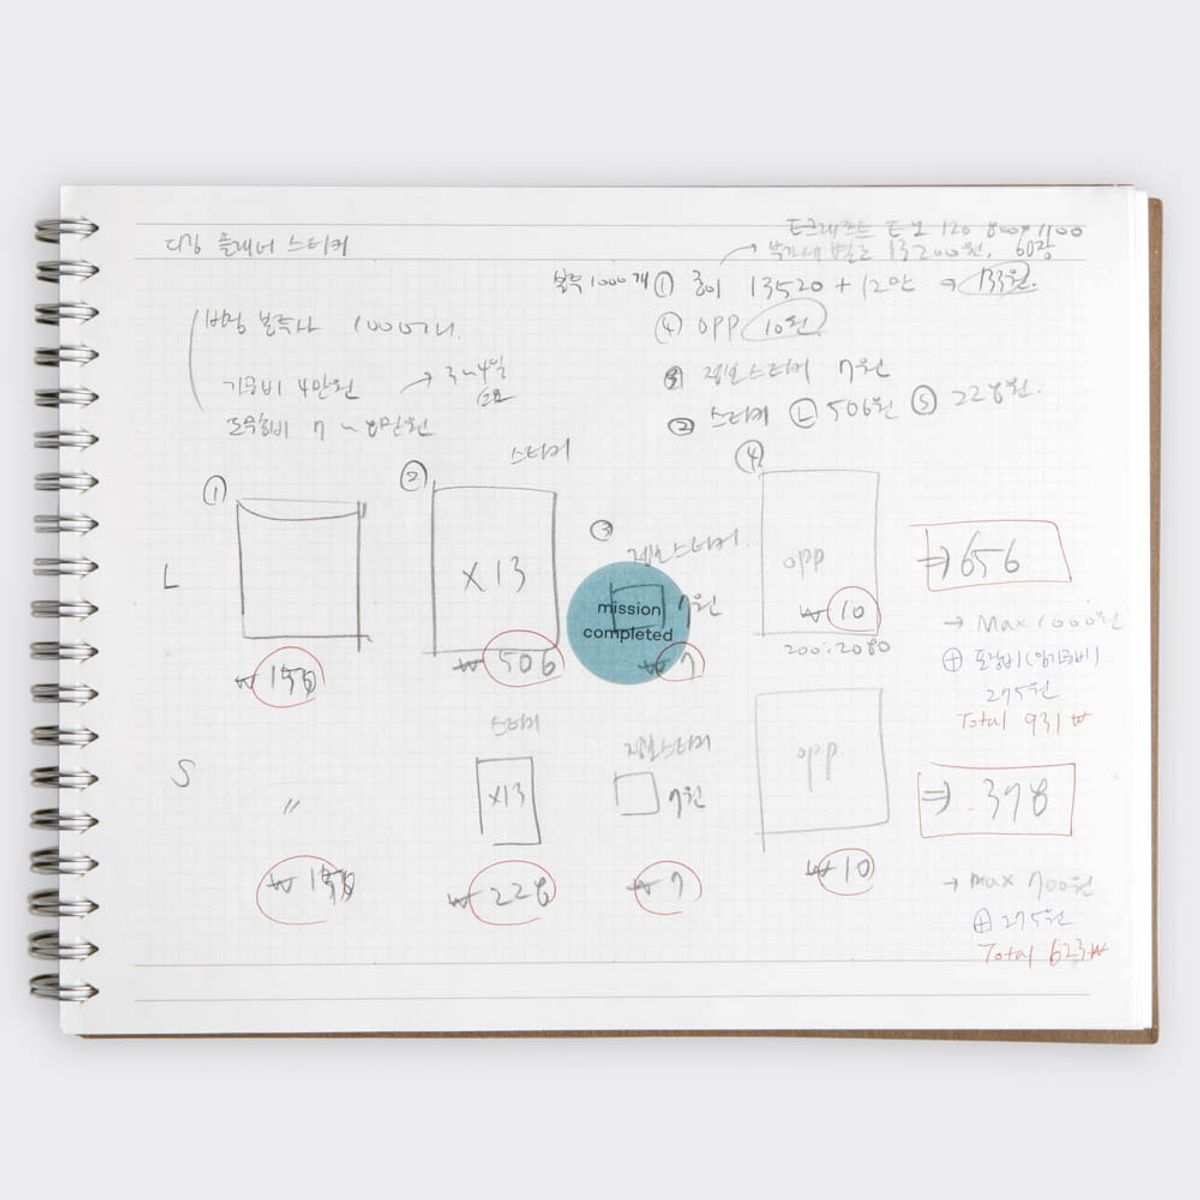 디깅 플래너 스티커
120 800 x 1100
부가세 별도 13200원. 60장
발주 1000개 ① 종이 13520 + 12만 → 133원.
④ OPP 10원
③ 젬보스티커 7원
② 스티커 Ⓛ 506원 Ⓢ 228원.
1000개.
4만원 → 3~4일
7~8만원
① ② 스티커 ③ 젬보스티커 ④
L
X 13
7원
opp
₩ 10
⇒ 656
mission
completed
₩ 506
₩ 7
200:2080
→ Max 1000원
⊕ 포장비(임가공비)
275원
Total 931 ₩
S
〃
스티커
x13
젬보스티커
7원
opp.
⇒ 398
₩ 228
₩ 7
₩ 10
→ max 700원
⊕ 275원
Total 623 ₩